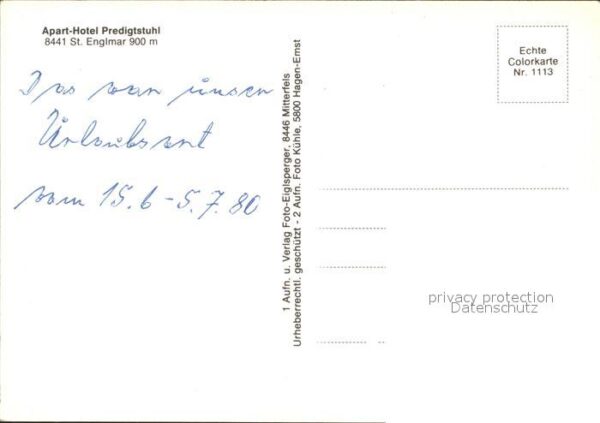 Apart-Hotel Predigtstuhl
8441 St. Englmar 900 m
Das war unser
Urlaubsort
vom 15.6 - 5.7.80
1 Aufn. u. Verlag Foto-Eiglsperger, 8446 Mitterfels
Urheberrechtl. geschützt - 2 Aufn. Foto Kühle, 5800 Hagen-Ernst
Echte
Colorkarte
Nr. 1113
privacy protection
Datenschutz